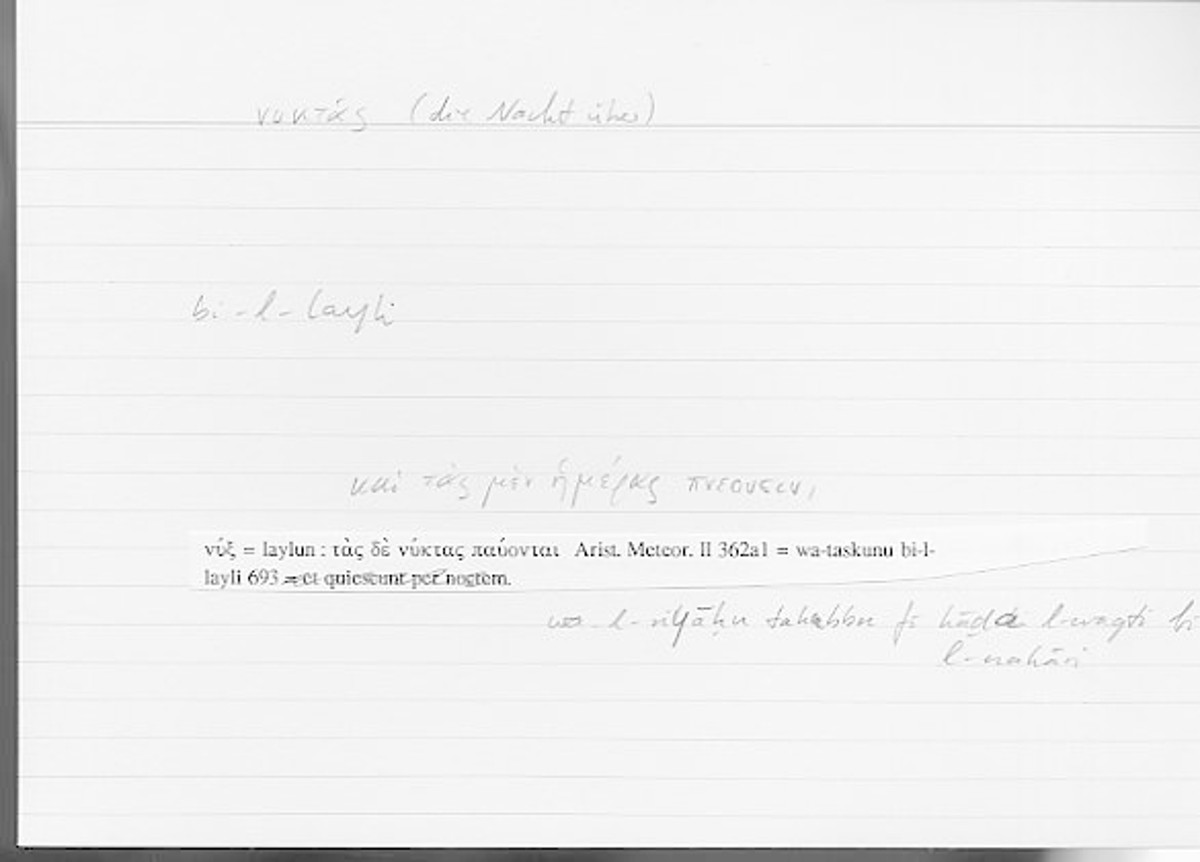 νυκτάς (die Nacht über)
bi-l-layli
καὶ τὰς μὲν ἡμέρας πνέουσιν,
νύξ = laylun : τὰς δὲ νύκτας παύονται Arist. Meteor. II 362a1 = wa-taskunu bi-l-
layli 693 = et quiescunt per noctem.
wa-l-riyāḥu tahabbu fī hāḏā l-waqti bi
l-nahāri